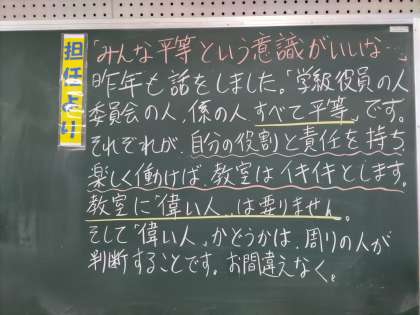 担任より
「みんな平等という意識がいいな…」
昨年も話をしました。「学級役員の人
委員会の人、係の人、すべて平等」です。
それぞれが、自分の役割と責任を持ち、
楽しく働けば、教室はイキイキとします。
教室に「偉い人」は要りません。
そして「偉い人」かどうかは、周りの人が
判断することです。お間違えなく。